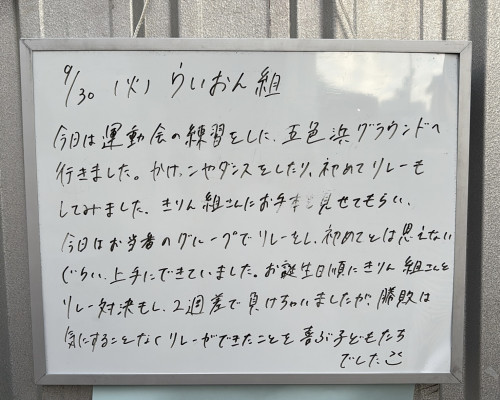 9/30 (火) らいおん組
今日は運動会の練習をしに、五色浜グラウンドへ
行きました。かけっこやダンスをしたり、初めてリレーも
してみました。きりん組さんにお手本を見せてもらい、
今日はお当番のグループでリレーをし、初めてとは思えない
ぐらい、上手にできていました。お誕生日順にきりん組さんと
リレー対決もし、2週差で負けちゃいましたが、勝敗は
気にすることなくリレーができたことを喜ぶ子どもたち
でした